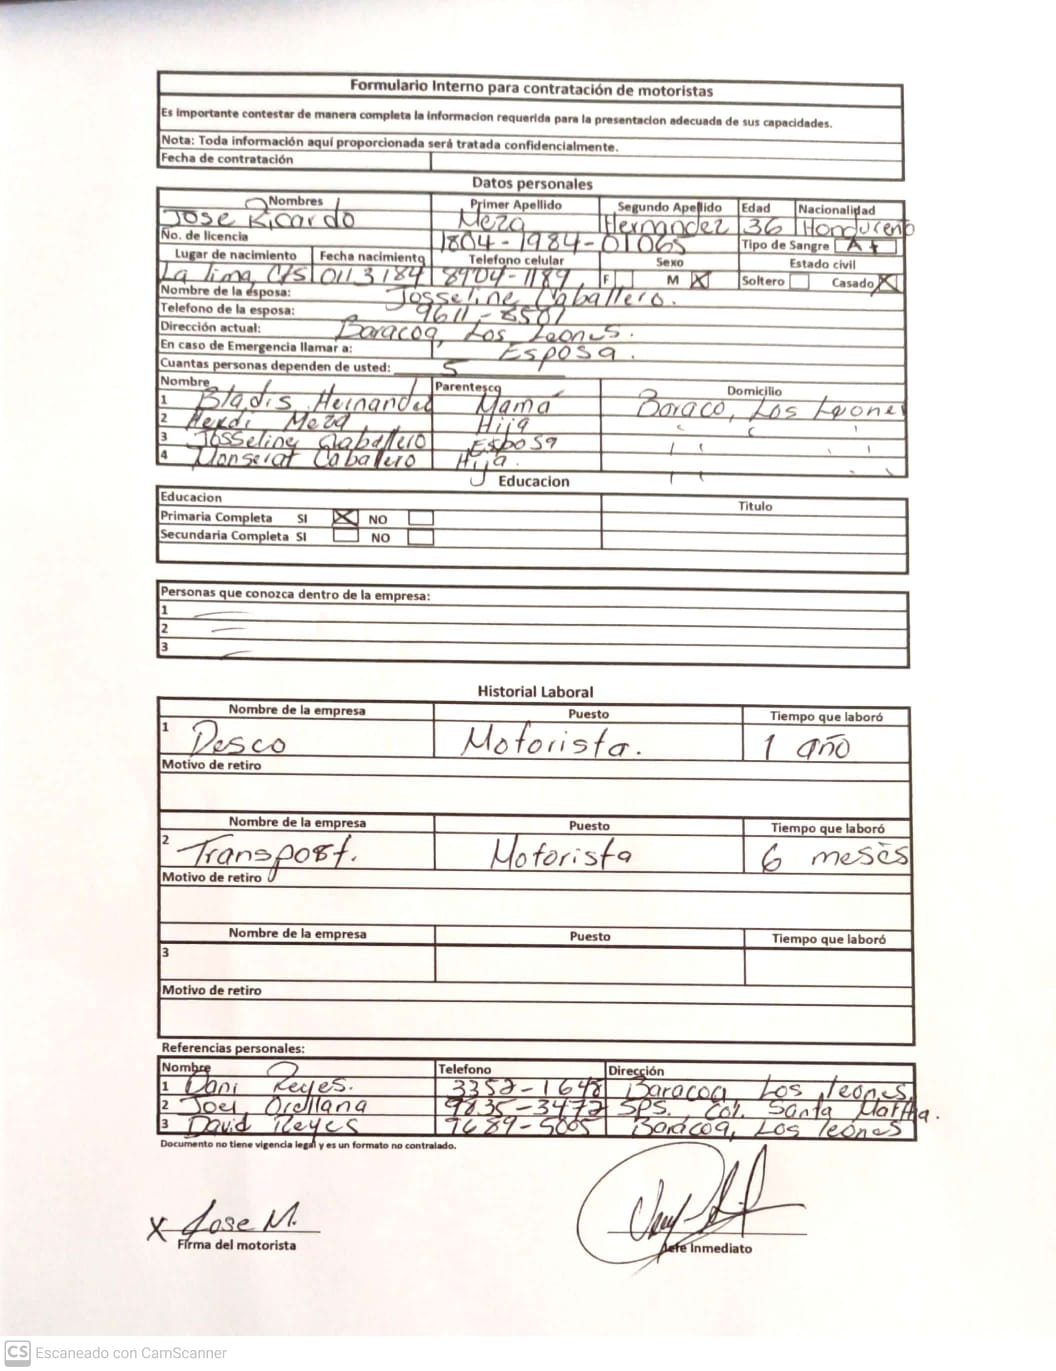 Formulario Interno para contratación de motoristas
Es importante contestar de manera completa la informacion requerida para la presentacion adecuada de sus capacidades.
Nota: Toda información aquí proporcionada será tratada confidencialmente.
Fecha de contratación
Datos personales
Nombres Primer Apellido Segundo Apellido Edad Nacionalidad
Jose Ricardo Meza Hernandez 36 Hondureño
No. de licencia 1804-1984-01065 Tipo de Sangre A+
Lugar de nacimiento Fecha nacimiento Telefono celular Sexo Estado civil
La lima, C/S 01/13/84 8904-1189 F M X Soltero Casado X
Nombre de la esposa: Josseline Caballero.
Telefono de la esposa: 9611-8501
Dirección actual: Baracoa, Los Leones.
En caso de Emergencia llamar a: Esposa.
Cuantas personas dependen de usted: 5
Nombre Parentesco Domicilio
1 Bladis Hernandez Mamá Baraco, Los Leones
2 Heydi Meza Hija
3 Josseline Caballero Esposa
4 Monserat Caballero Hija.
Educacion
Educacion Titulo
Primaria Completa SI X NO
Secundaria Completa SI NO
Personas que conozca dentro de la empresa:
1
2
3
Historial Laboral
Nombre de la empresa Puesto Tiempo que laboró
1 Desco Motorista. 1 año
Motivo de retiro
Nombre de la empresa Puesto Tiempo que laboró
2 Transport. Motorista 6 meses
Motivo de retiro
Nombre de la empresa Puesto Tiempo que laboró
3
Motivo de retiro
Referencias personales:
Nombre Telefono Dirección
1 Dani Reyes. 3352-1648 Baracoa Los leones
2 Joel Orellana 9835-3472 SPS. Col. Santa Martha.
3 David Reyes 9689-5005 Baracoa, Los leones
Documento no tiene vigencia legal y es un formato no contralado.
X Jose M.
Firma del motorista Jefe Inmediato
CS Escaneado con CamScanner